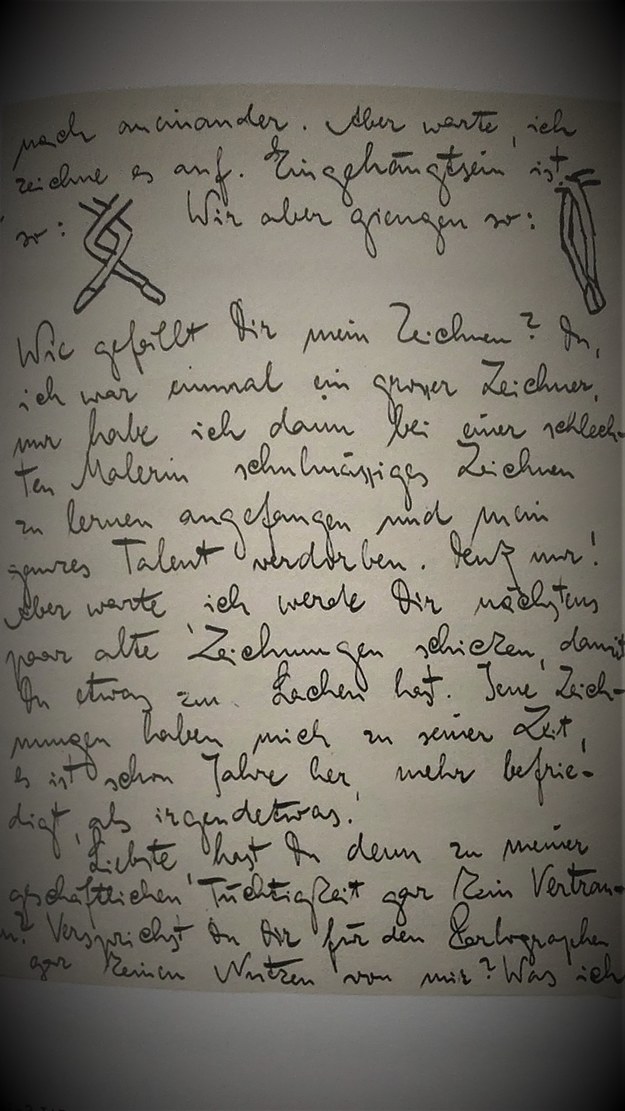 nach aneinander. Aber warte, ich
zeichne es auf. Eingehängtsein ist
so: Wir aber giengen so:
Wie gefällt Dir mein Zeichnen? Du,
ich war einmal ein grosser Zeichner,
nur habe ich dann bei einer schlech-
ten Malerin schulmässiges Zeichnen
zu lernen angefangen und mein
ganzes Talent verdorben. Denk nur!
Aber warte ich werde Dir nächstens
paar alte Zeichnungen schicken, damit
Du etwas zum Lachen hast. Jene Zeich-
nungen haben mich zu seiner Zeit,
es ist schon Jahre her, mehr befrie-
digt, als irgendetwas.
Liebste, hast Du denn zu meiner
geschäftlichen Tüchtigkeit gar kein Vertrau-
n? Versprichst Du Dir für den Parlographen
gar keinen Nutzen von mir? Was ich